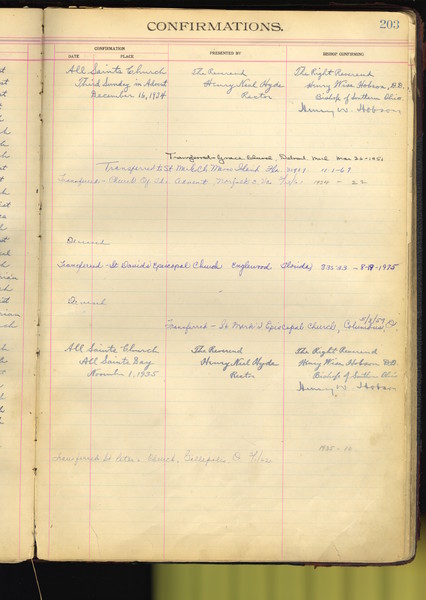 CONFIRMATIONS. 203
CONFIRMATION
DATE PLACE PRESENTED BY BISHOP CONFIRMING
All Saints Church The Reverend The Right Reverend
Third Sunday in Advent Henry Neil Hyde Henry Wise Hobson, D.D.
December 16, 1934 Rector Bishop of Southern Ohio
Henry W. Hobson
Transferred Grace Church, Detroit, Mich Mar 22-1951
Transferred to St Mark Ch Marco Island Fla 11-1-69
Transferred - Church Of The Advent, Norfolk 2, Va. 1934 - 22
Deceased
Transferred - St. Davids Episcopal Church Englewood Florida 33533 - 8-19-1975
Deceased
Transferred - St. Mark's Episcopal Church, Columbus, O.
All Saints Church The Reverend The Right Reverend
All Saints Day Henry Neil Hyde Henry Wise Hobson D.D.
November 1, 1935 Rector Bishop of Southern Ohio
Henry W. Hobson
1935 - 12
Transferred St Peter's Church, Gallipolis, O.